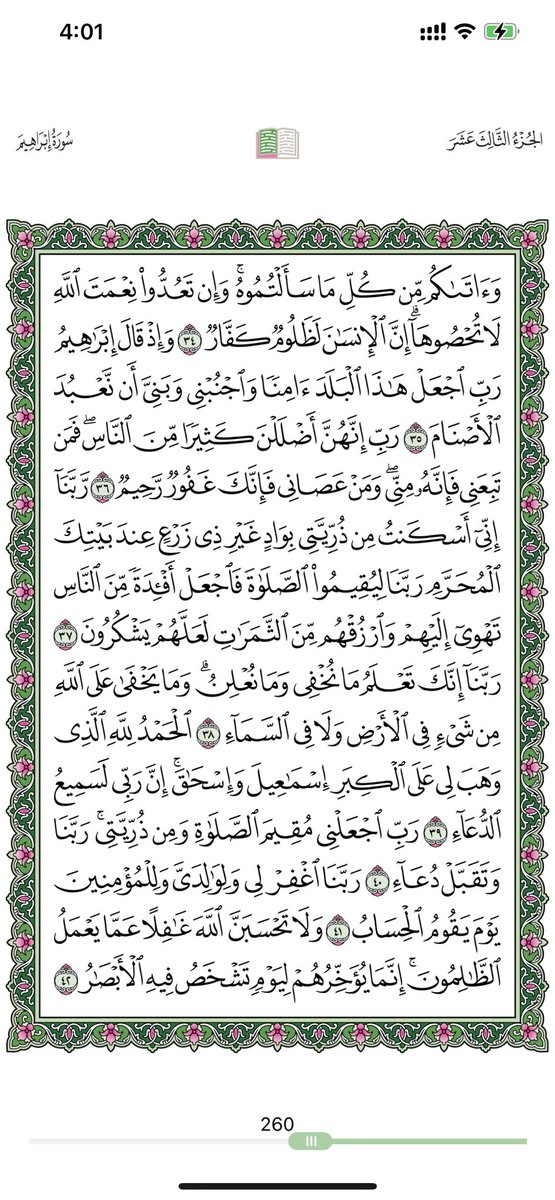 4:01
الجزء الثالث عشر
سورة إبراهيم
وَءَاتَىٰكُم مِّن كُلِّ مَا سَأَلۡتُمُوهُۚ وَإِن تَعُدُّواْ نِعۡمَتَ ٱللَّهِ
لَا تُحۡصُوهَآۗ إِنَّ ٱلۡإِنسَٰنَ لَظَلُومٞ كَفَّارٞ ٣٤ وَإِذۡ قَالَ إِبۡرَٰهِيمُ
رَبِّ ٱجۡعَلۡ هَٰذَا ٱلۡبَلَدَ ءَامِنٗا وَٱجۡنُبۡنِي وَبَنِيَّ أَن نَّعۡبُدَ
ٱلۡأَصۡنَامَ ٣٥ رَبِّ إِنَّهُنَّ أَضۡلَلۡنَ كَثِيرٗا مِّنَ ٱلنَّاسِۖ فَمَن
تَبِعَنِي فَإِنَّهُۥ مِنِّيۖ وَمَنۡ عَصَانِي فَإِنَّكَ غَفُورٞ رَّحِيمٞ ٣٦ رَّبَّنَآ
إِنِّيٓ أَسۡكَنتُ مِن ذُرِّيَّتِي بِوَادٍ غَيۡرِ ذِي زَرۡعٍ عِندَ بَيۡتِكَ
ٱلۡمُحَرَّمِ رَبَّنَا لِيُقِيمُواْ ٱلصَّلَوٰةَ فَٱجۡعَلۡ أَفۡـِٔدَةٗ مِّنَ ٱلنَّاسِ
تَهۡوِيٓ إِلَيۡهِمۡ وَٱرۡزُقۡهُم مِّنَ ٱلثَّمَرَٰتِ لَعَلَّهُمۡ يَشۡكُرُونَ ٣٧
رَبَّنَآ إِنَّكَ تَعۡلَمُ مَا نُخۡفِي وَمَا نُعۡلِنُۗ وَمَا يَخۡفَىٰ عَلَى ٱللَّهِ
مِن شَيۡءٖ فِي ٱلۡأَرۡضِ وَلَا فِي ٱلسَّمَآءِ ٣٨ ٱلۡحَمۡدُ لِلَّهِ ٱلَّذِي
وَهَبَ لِي عَلَى ٱلۡكِبَرِ إِسۡمَٰعِيلَ وَإِسۡحَٰقَۚ إِنَّ رَبِّي لَسَمِيعُ
ٱلدُّعَآءِ ٣٩ رَبِّ ٱجۡعَلۡنِي مُقِيمَ ٱلصَّلَوٰةِ وَمِن ذُرِّيَّتِيۚ رَبَّنَا
وَتَقَبَّلۡ دُعَآءِ ٤٠ رَبَّنَا ٱغۡفِرۡ لِي وَلِوَٰلِدَيَّ وَلِلۡمُؤۡمِنِينَ
يَوۡمَ يَقُومُ ٱلۡحِسَابُ ٤١ وَلَا تَحۡسَبَنَّ ٱللَّهَ غَٰفِلًا عَمَّا يَعۡمَلُ
ٱلظَّٰلِمُونَۚ إِنَّمَا يُؤَخِّرُهُمۡ لِيَوۡمٖ تَشۡخَصُ فِيهِ ٱلۡأَبۡصَٰرُ ٤٢
260